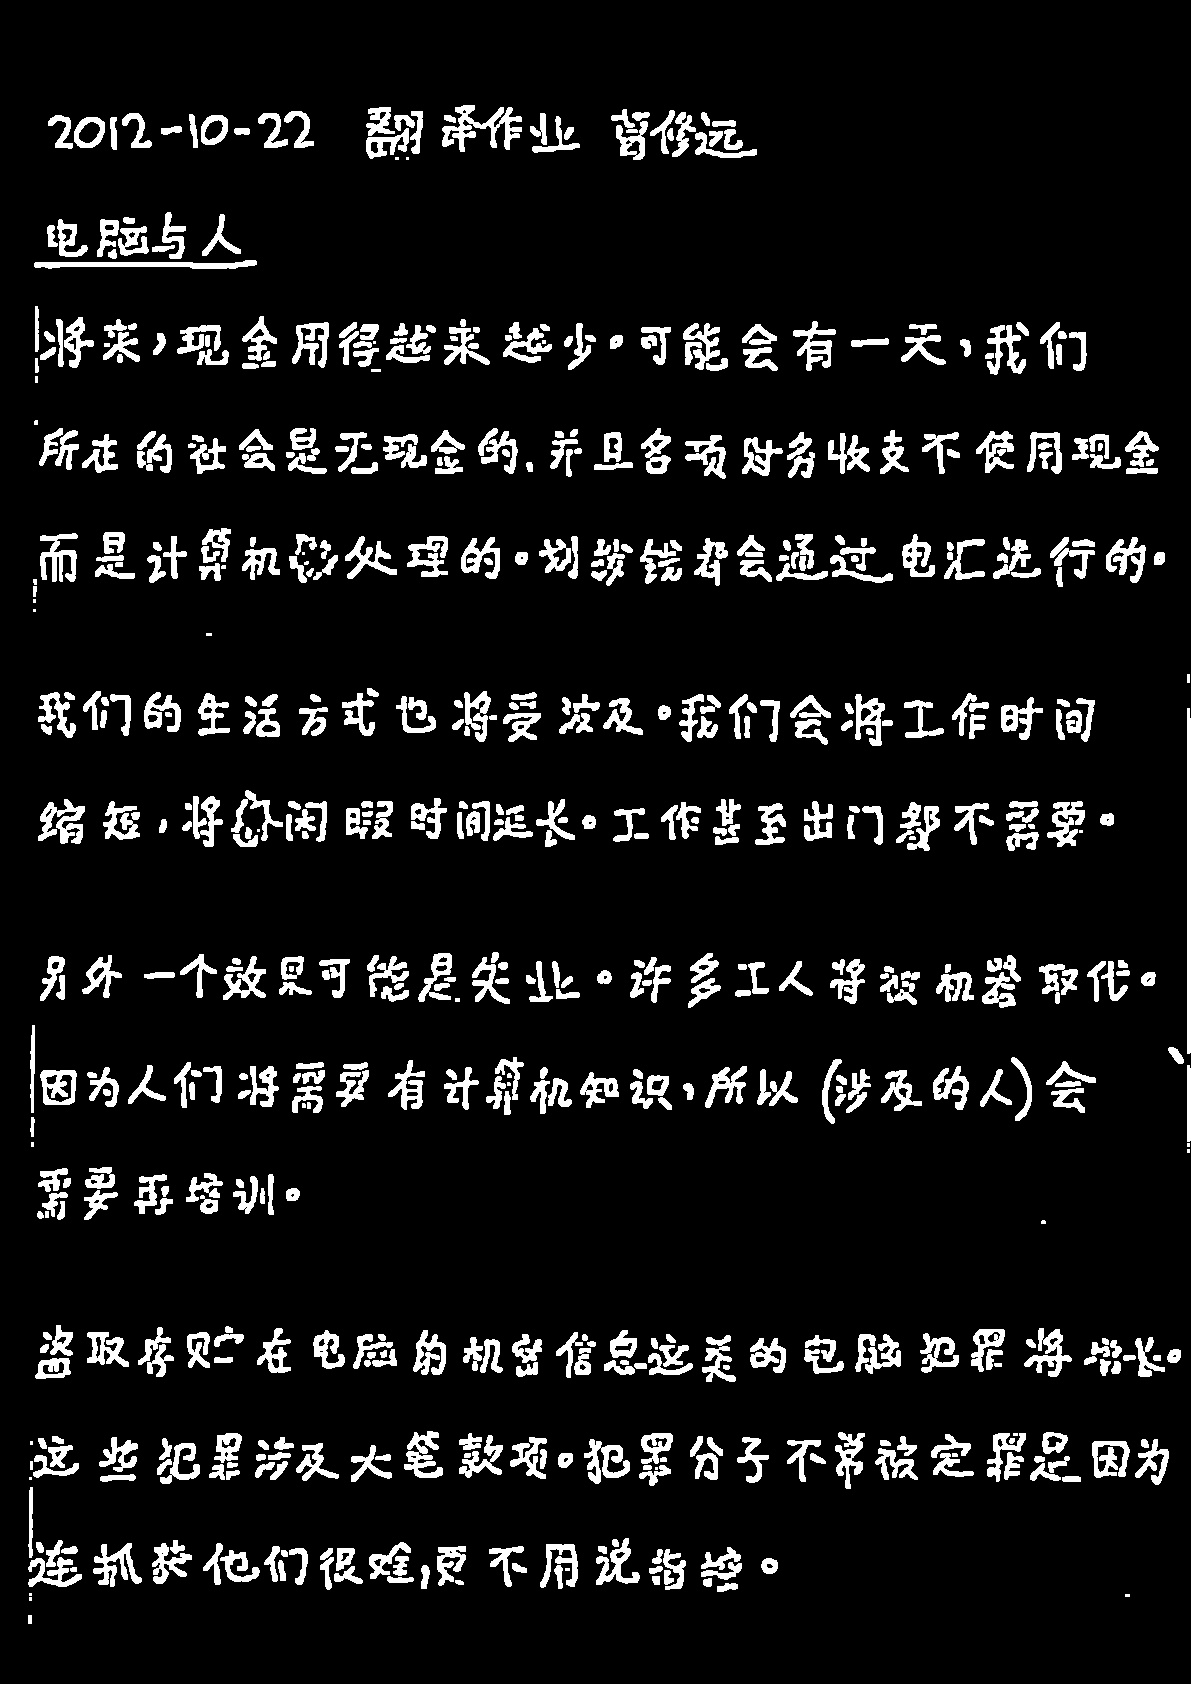 2012-10-22 翻译作业 修远
电脑与人
将来，现金用得越来越少。可能会有一天，我们
所在的社会是无现金的，并且各项财务收支不使用现金
而是计算机处理的。划拨钱都会通过电汇进行的。
我们的生活方式也将受波及。我们会将工作时间
缩短，将闲暇时间延长。工作甚至出门都不需要。
另外一个效果可能是失业。许多工人将被机器取代。
因为人们将需要有计算机知识，所以(涉及的人)会
需要再培训。
盗取存贮在电脑的机密信息这类的电脑犯罪将增长。
这些犯罪涉及大笔款项。犯罪分子不常被定罪是因为
连抓获他们很难，更不用说指控。